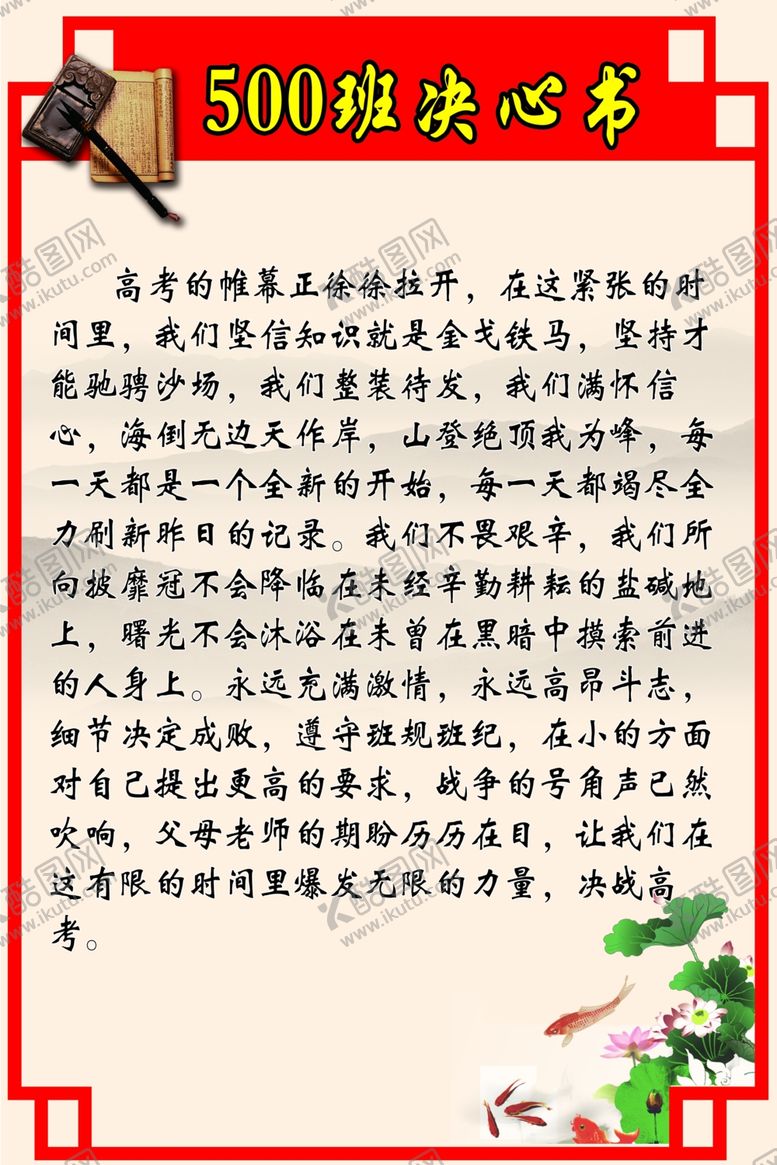 500班决心书
高考的帷幕正徐徐拉开，在这紧张的时
间里，我们坚信知识就是金戈铁马，坚持才
能驰骋沙场，我们整装待发，我们满怀信
心，海倒无边天作岸，山登绝顶我为峰，每
一天都是一个全新的开始，每一天都竭尽全
力刷新昨日的记录。我们不畏艰辛，我们所
向披靡冠不会降临在未经辛勤耕耘的盐碱地
上，曙光不会沐浴在未曾在黑暗中摸索前进
的人身上。永远充满激情，永远高昂斗志，
细节决定成败，遵守班规班纪，在小的方面
对自己提出更高的要求，战争的号角声已然
吹响，父母老师的期盼历历在目，让我们在
这有限的时间里爆发无限的力量，决战高
考。
酷图网
www.ikutu.com